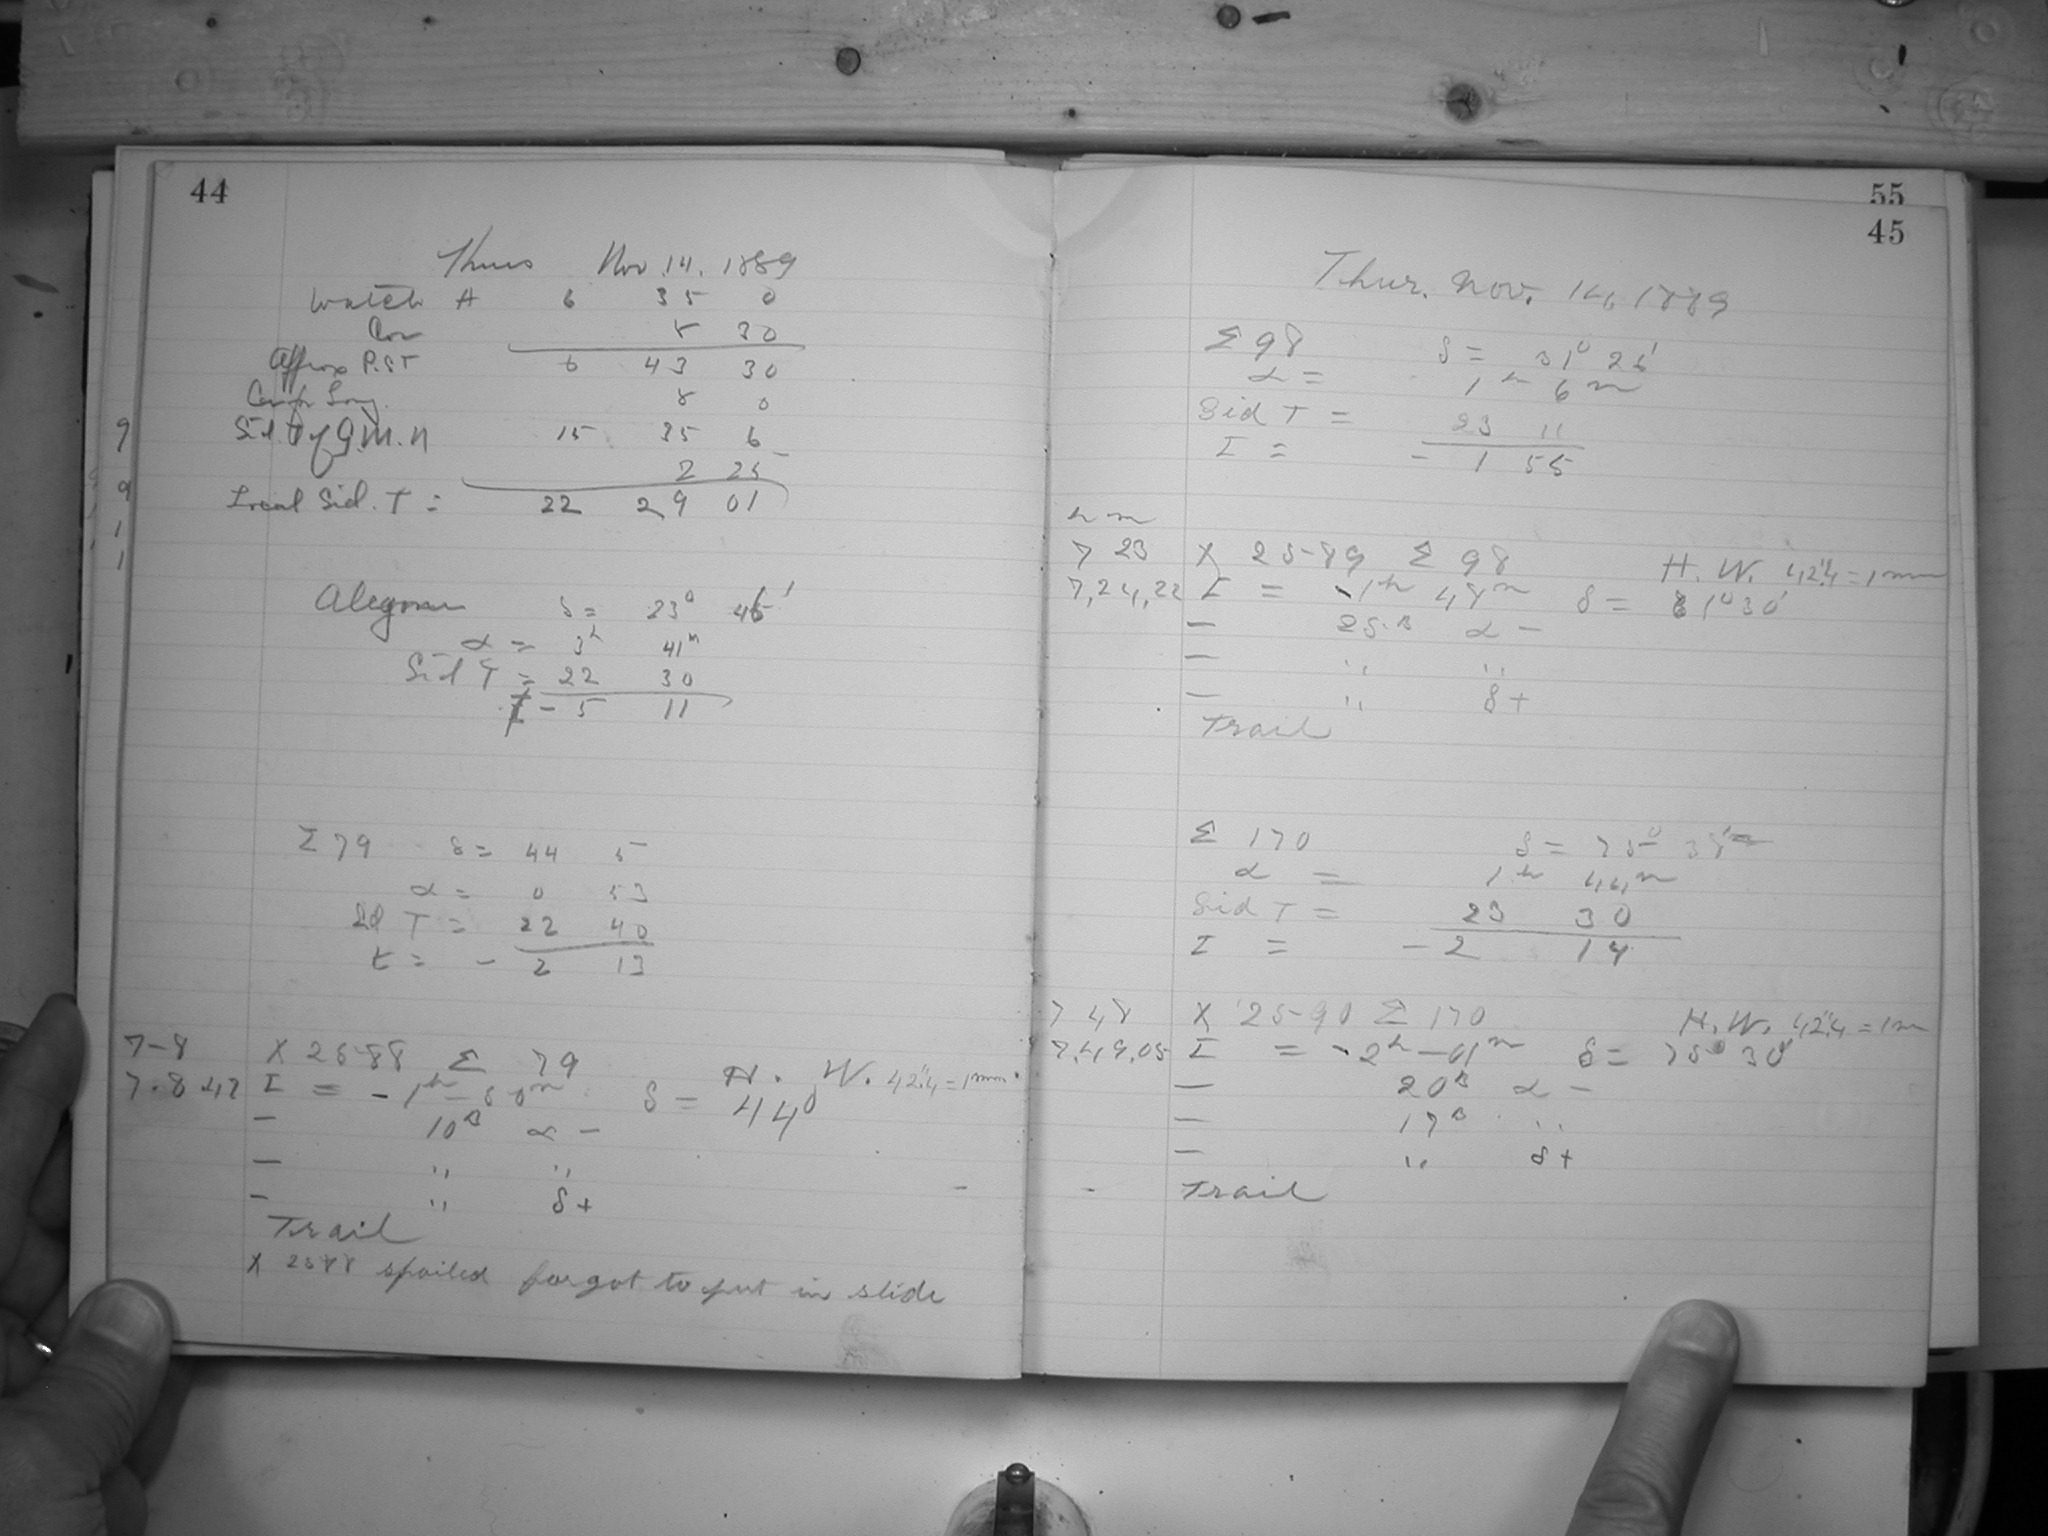 44
Thurs Nov. 14. 1889
Watch A 6 35 0
Cor 8 30
Approx P.S.T 6 43 30
8 0
Sid. T of G.M.N 15 35 6
2 25
Local Sid. T = 22 29 01
δ = 23° 46'
α = 3h 41m
Sid T = 22 30
t - 5 11
Σ 79 δ = 44 5
α = 0 53
Sid T = 22 40
t = - 2 13
7-8 X 2588 Σ 79 H. W. 42".4 = 1mm.
7.8 42 I = -1h-50m δ = 44°
— 10B α -
— " "
— " δ +
Trail
X 2588 spoiled forgot to put in slide
9
9
1
1
55
45
Thur. Nov. 14, 1889
Σ 98 δ = 31° 26'
α = 1h 6m
Sid T = 23 11
I = - 1 55
h m
7 23 X 2589 Σ 98 H. W. 42".4 = 1mm
7,24,22 I = -1h 48m δ = 31°30'
— 25.B α -
— " "
— " δ +
Trail
Σ 170 δ = 75° 38'
α = 1h 44m
Sid T = 23 30
I = - 2 14
7 48 X 2590 Σ 170 H. W. 42".4 = 1m
7,49,05 I = -2h-01m δ = 75° 30'
— 20B α -
— 17B "
— " δ +
Trail